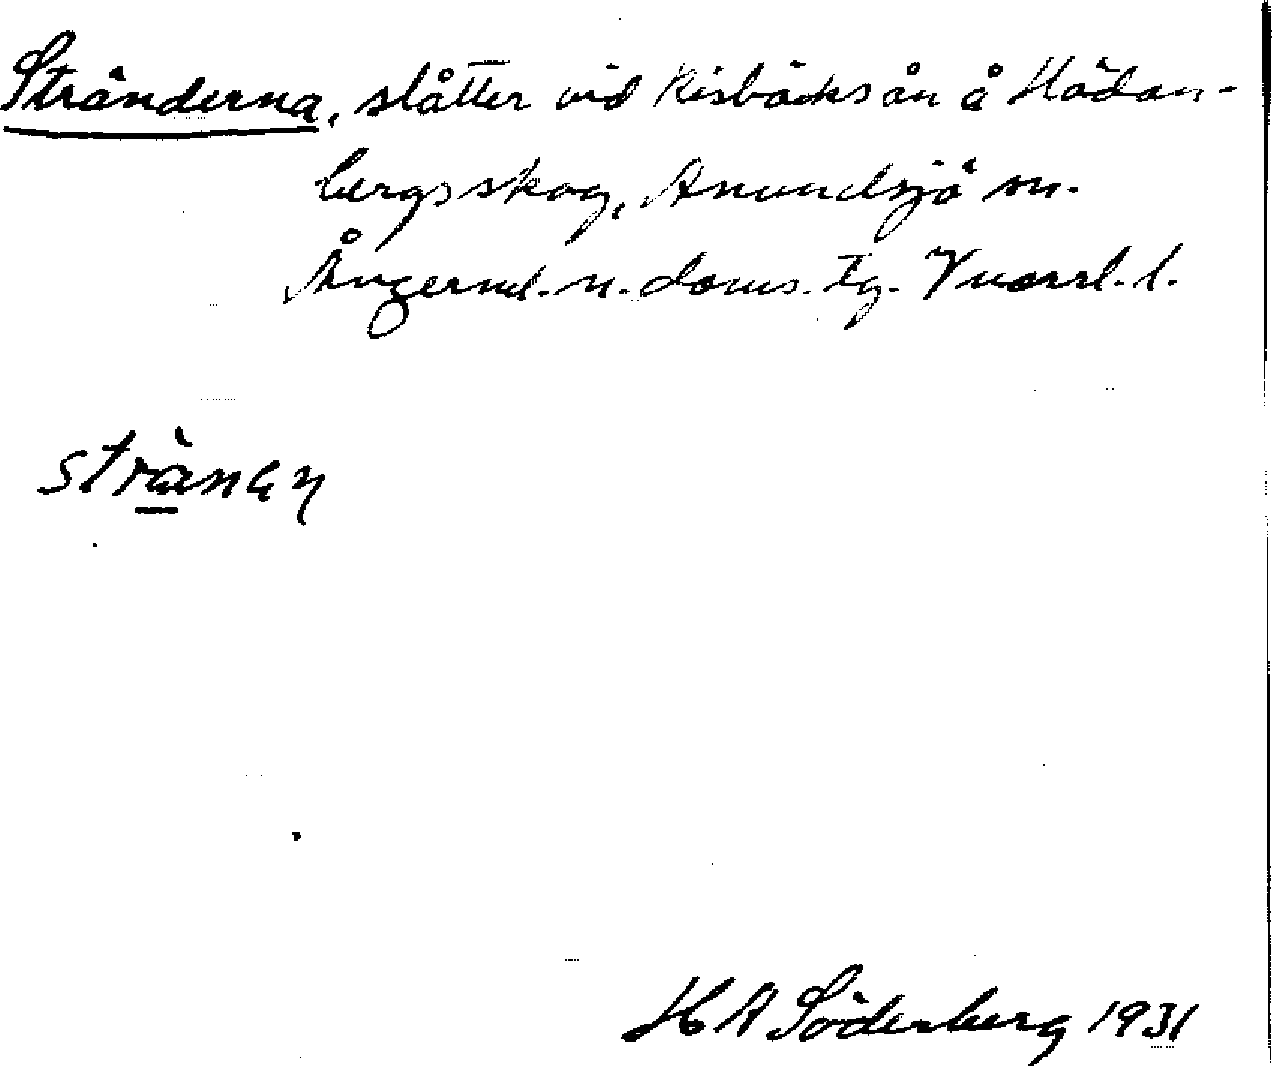 Stränderna, slåtter vid Risbäcksån å Hädan-
bergsskog, Anundsjö sn.
Ångerml. n. doms. tg. Vnorrl. l.
stränəη
H A Söderberg 1931